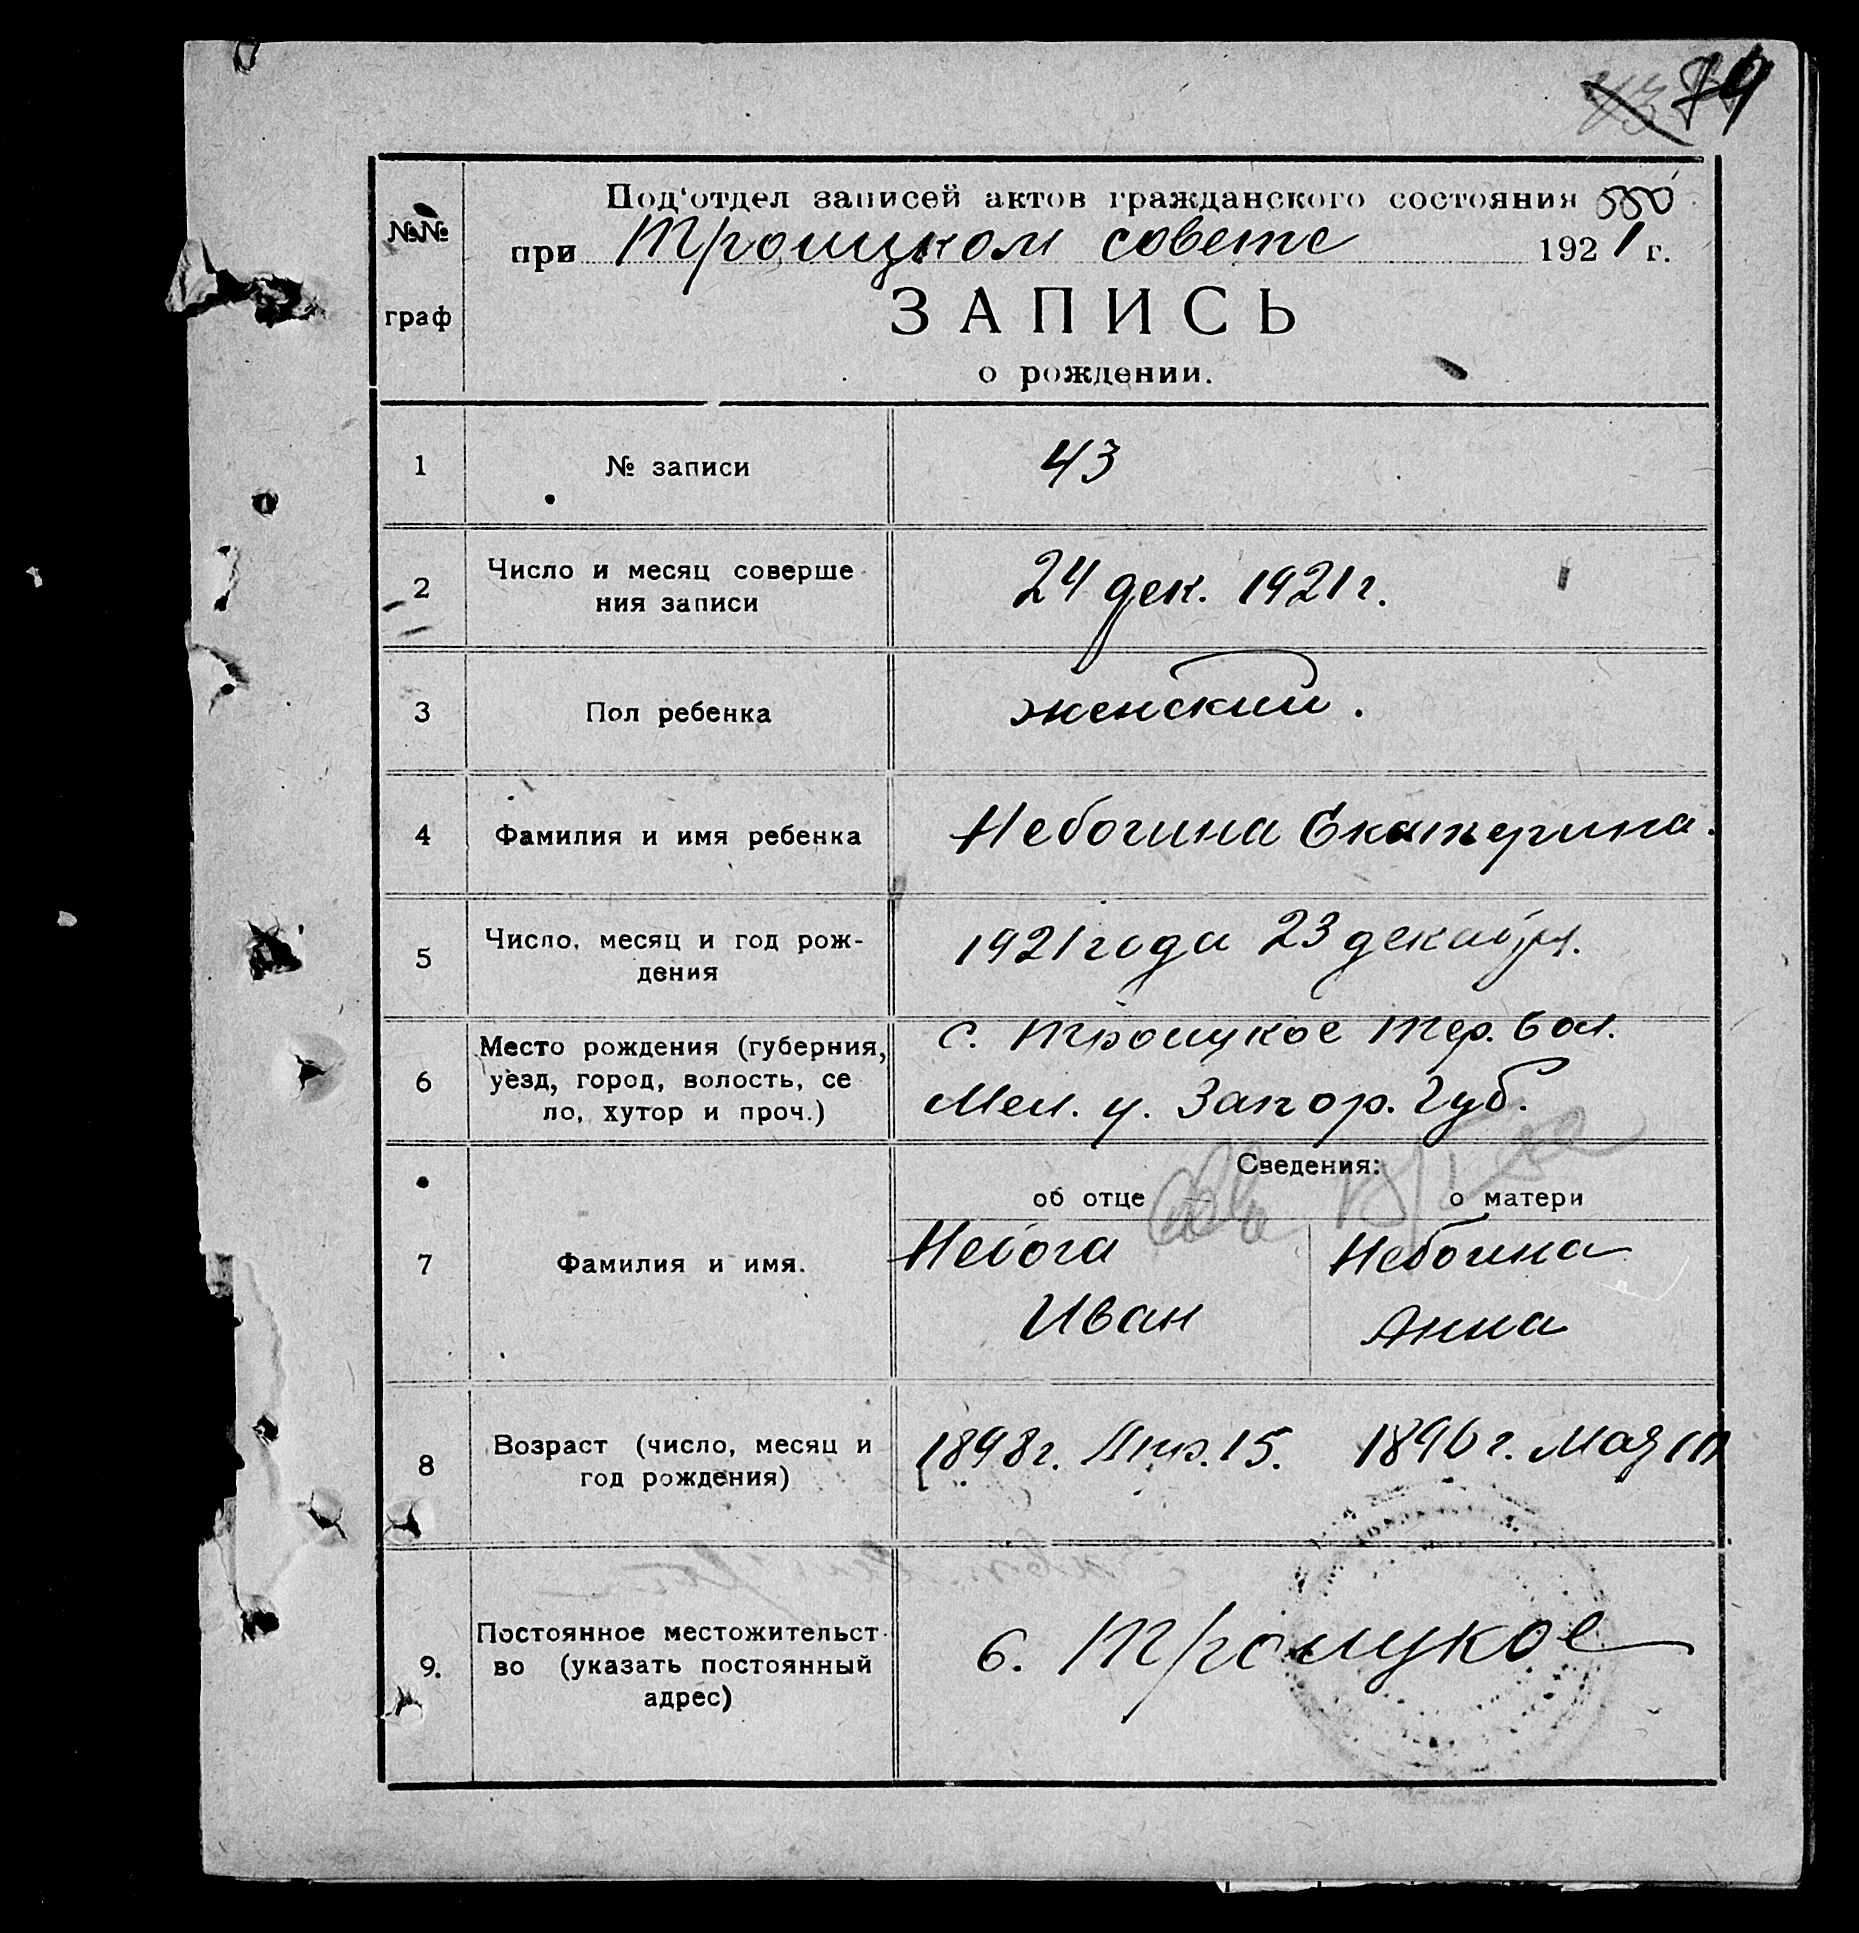 74
Под‘отдел записей актов гражданского состояния
№№
при Троицком совете 1921 г.
ЗАПИСЬ
граф
о рождении.
1 № записи 43
2 Число и месяц соверше
ния записи 24 дек. 1921 г.
3 Пол ребенка женский.
4 Фамилия и имя ребенка Небогина Екатерина.
5 Число, месяц и год рож-
дения 1921 года 23 декабря.
6 Место рождения (губерния,
уезд, город, волость, се
ло, хутор и проч.)
с. Троицкое Тер. вол.
Мел. у. Запор. Губ.
Сведения:
об отце о матери
7 Фамилия и имя.
Небога Небогина
Иван Анна
8 Возраст (число, месяц и
год рождения)
1898 г. 15. 1896 г. Мая
9. Постоянное местожительст
во (указать постоянный
адрес)
с. Троицкое